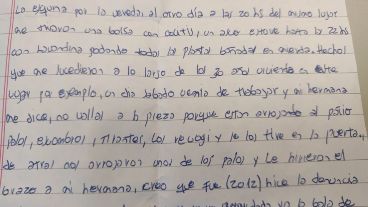 La esquina por la vereda, al otro día a las 20 hs del mismo lugar
me tiraron una bolsa con, un año estuve hasta la 22hs
con podando todas las plantas Hechos
que me sucedieron a lo largo de los 30 años viviendo en este
lugar por ejemplo, un día sábado vengo de trabajar y mi hermana
me dice, no vallas a la pieza porque están arrojando al patio
palos, escombros, los recogí y se los tire en la puerta,
de atrás nos arrojaron unos de los palos y le hirieron el
brazo a mi hermana, creo que fue (2012) hice la denuncia
la bala de